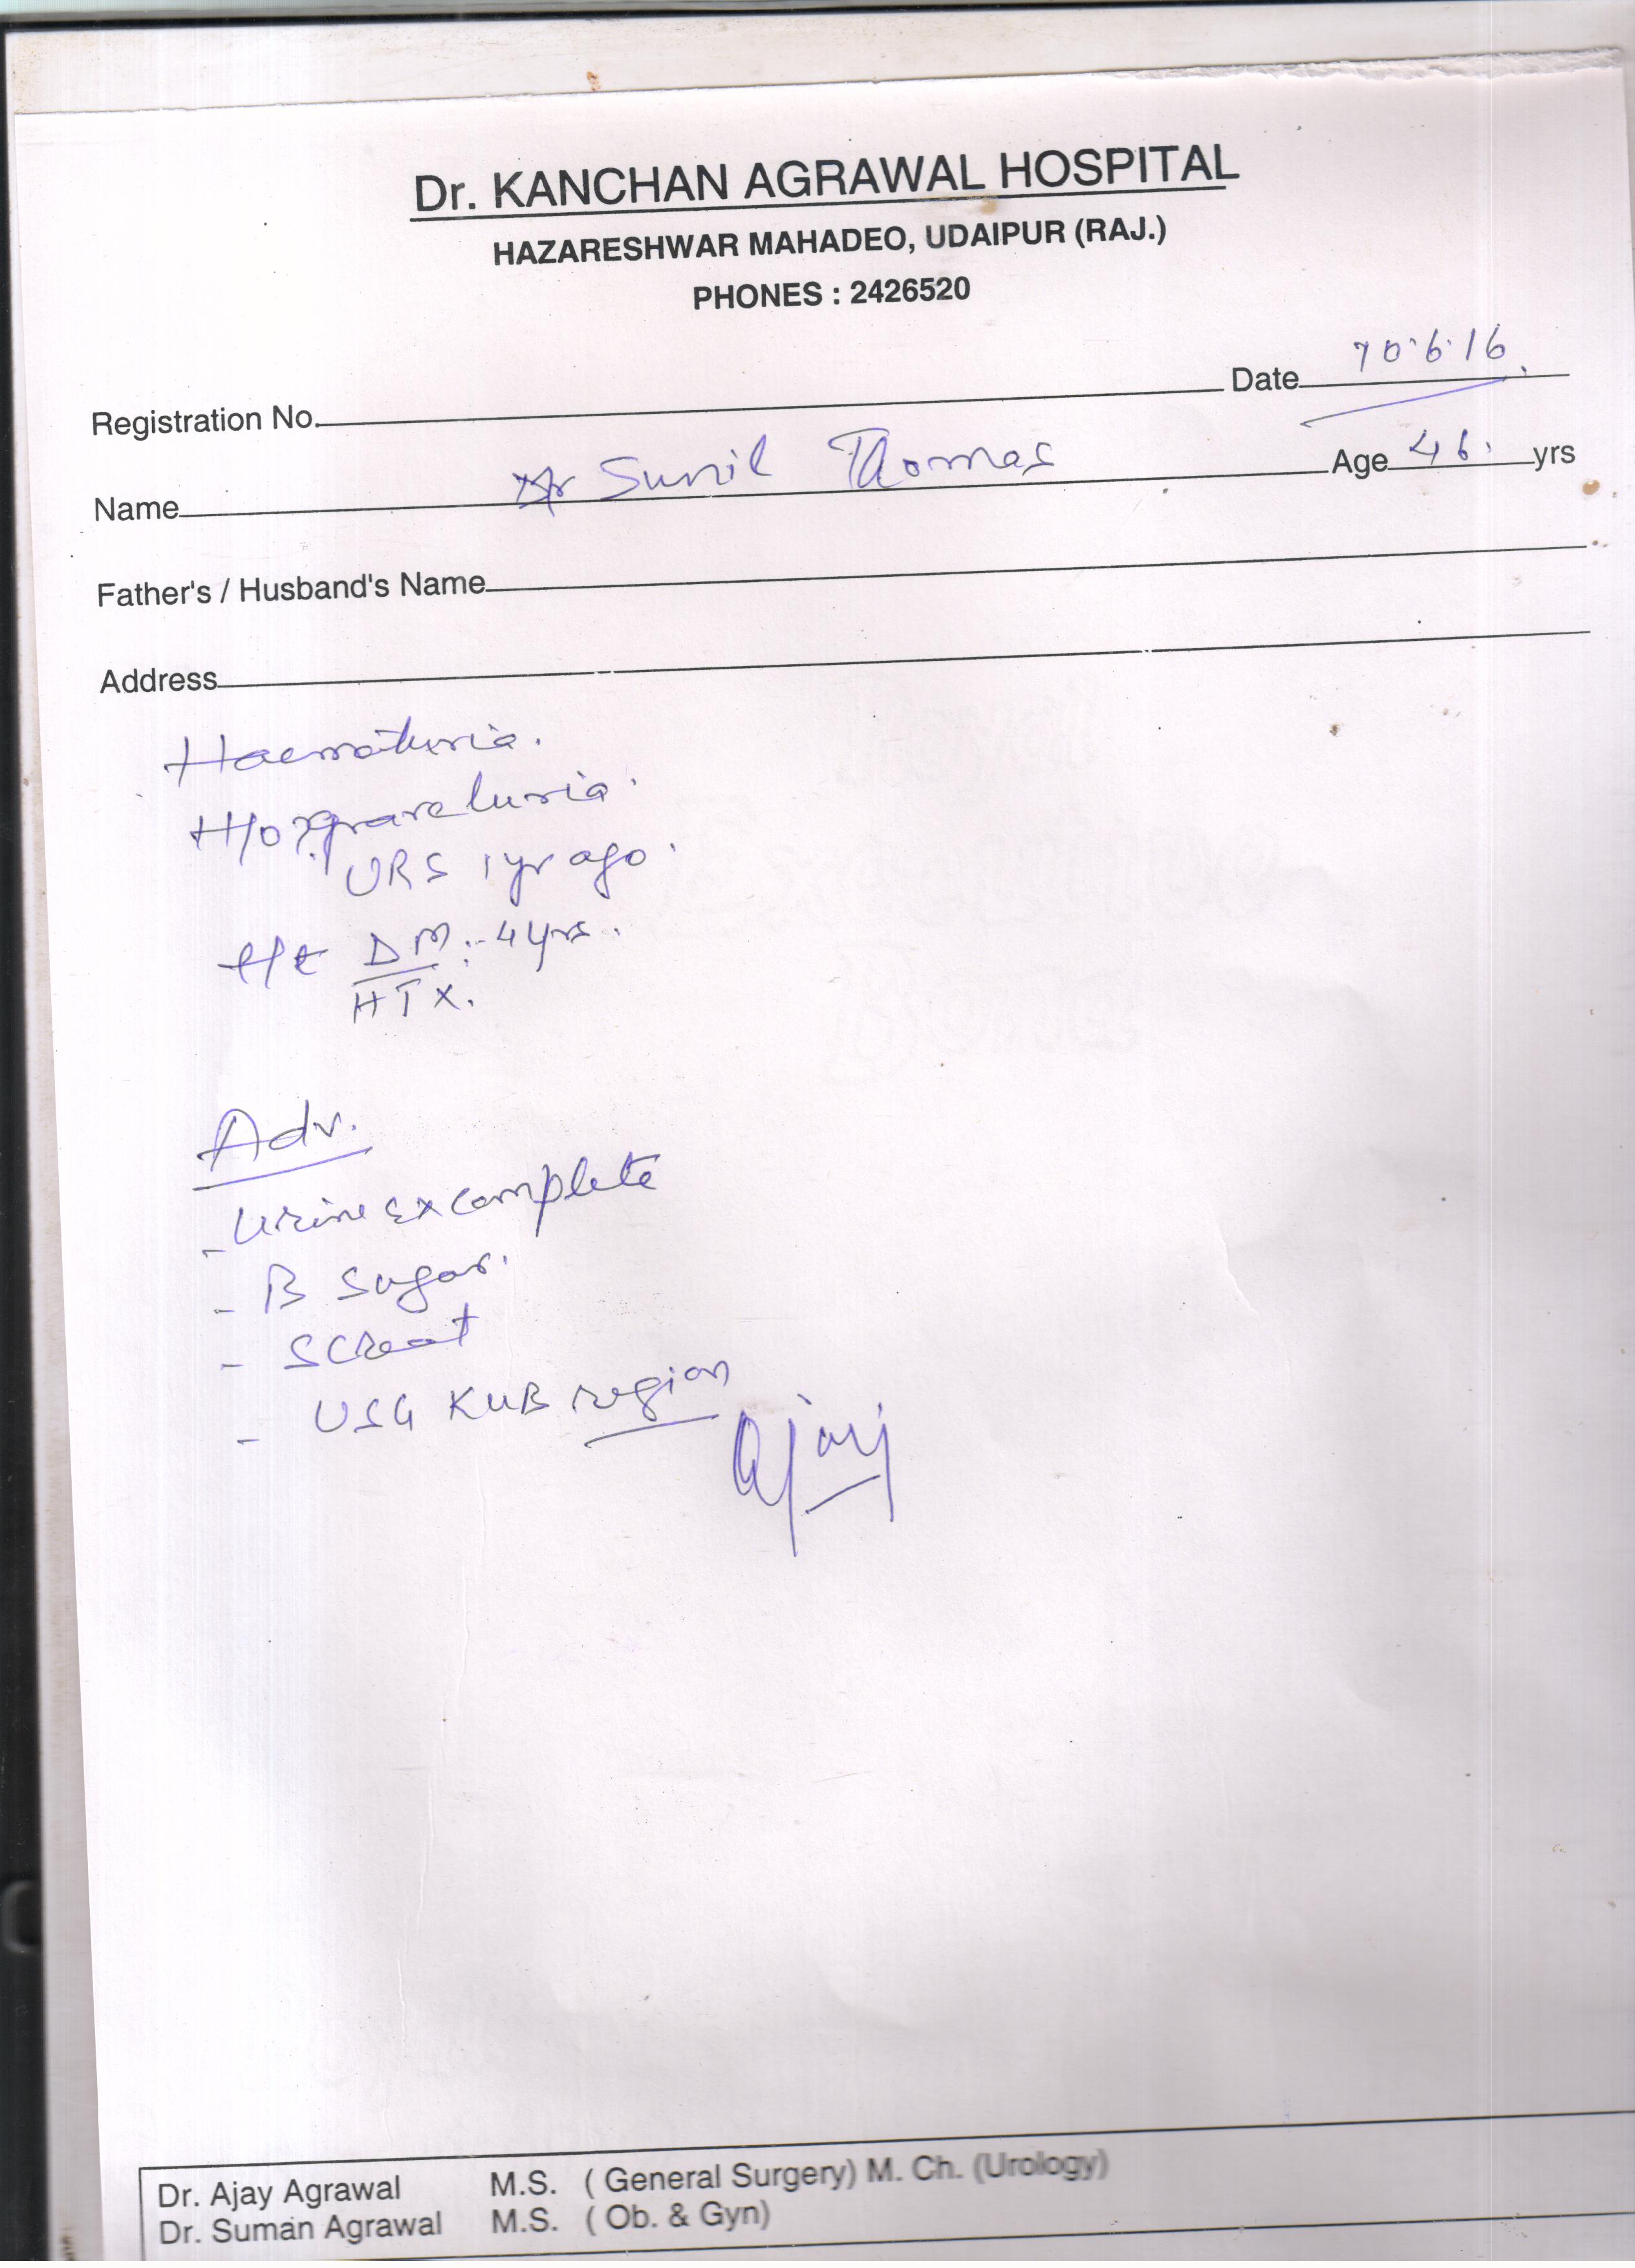 Dr. KANCHAN AGRAWAL HOSPITAL
HAZARESHWAR MAHADEO, UDAIPUR (RAJ.)
PHONES : 2426520
Registration No. Date 6.16
Name Sunil Thomas Age 46. yrs
Father's / Husband's Name
Address
Haematuria.
H/o
URS 1 yr ago.
DM :- 4 yrs.
HT x.
Adv.
- Urine Ex complete
- B Sugar.
- S Creat
- USG KUB region
Ajay
Dr. Ajay Agrawal M.S. ( General Surgery) M. Ch. (Urology)
Dr. Suman Agrawal M.S. ( Ob. & Gyn)